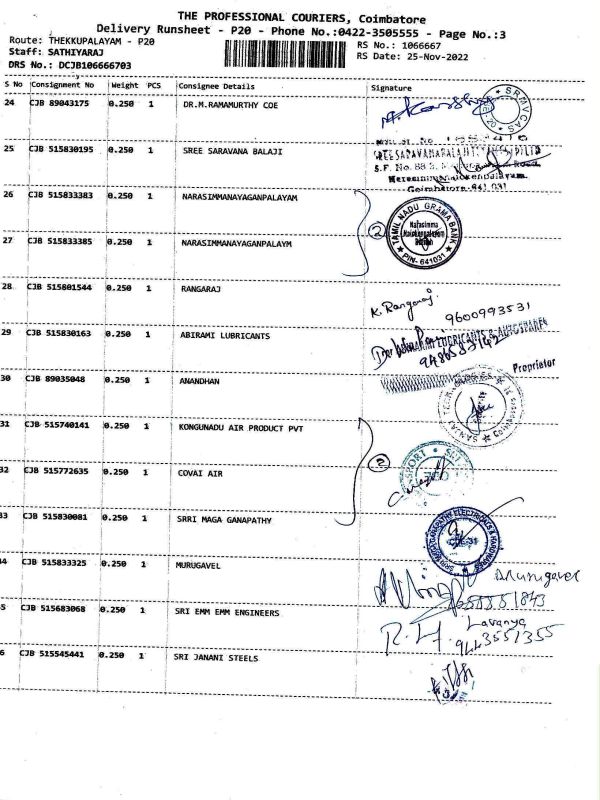 THE PROFESSIONAL COURIERS, Coimbatore
Delivery Runsheet - P20 - Phone No.:0422-3505555 - Page No.:3
Route: THEKKUPALAYAM - P20
Staff: SATHIYARAJ
DRS No.: DCJB106666703
RS No.: 1066667
RS Date: 25-Nov-2022
S No Consignment No Weight PCS Consignee Details Signature
24 CJB 89043175 0.250 1 DR.M.RAMAMURTHY COE
SRMVCAS
25 CJB 515830195 0.250 1 SREE SARAVANA BALAJI
Coimbatore-641 031
26 CJB 515833383 0.250 1 NARASIMMANAYAGANPALAYAM
2
TAMIL NADU GRAMA BANK
Narasimma
Naickenpalayam
Branch
PIN-641031
27 CJB 515833385 0.250 1 NARASIMMANAYAGANPALAYM
28 CJB 515801544 0.250 1 RANGARAJ
K. Rangaraj
9600993531
29 CJB 515830163 0.250 1 ABIRAMI LUBRICANTS
LUBRICANTS & AUTOSPARES
Proprietor
30 CJB 89035048 0.250 1 ANANDHAN
31 CJB 515740141 0.250 1 KONGUNADU AIR PRODUCT PVT
2
32 CJB 515772635 0.250 1 COVAI AIR
33 CJB 515830081 0.250 1 SRRI MAGA GANAPATHY
SRRI MAGA GANAPATHY ELECTRICALS & HARDWARES
4 CJB 515833325 0.250 1 MURUGAVEL
Murugavel
5 CJB 515683068 0.250 1 SRI EMM EMM ENGINEERS
Lavanya
9443551355
6 CJB 515545441 0.250 1 SRI JANANI STEELS